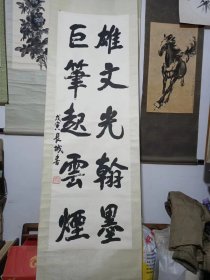 雄文光翰墨
巨筆起雲煙